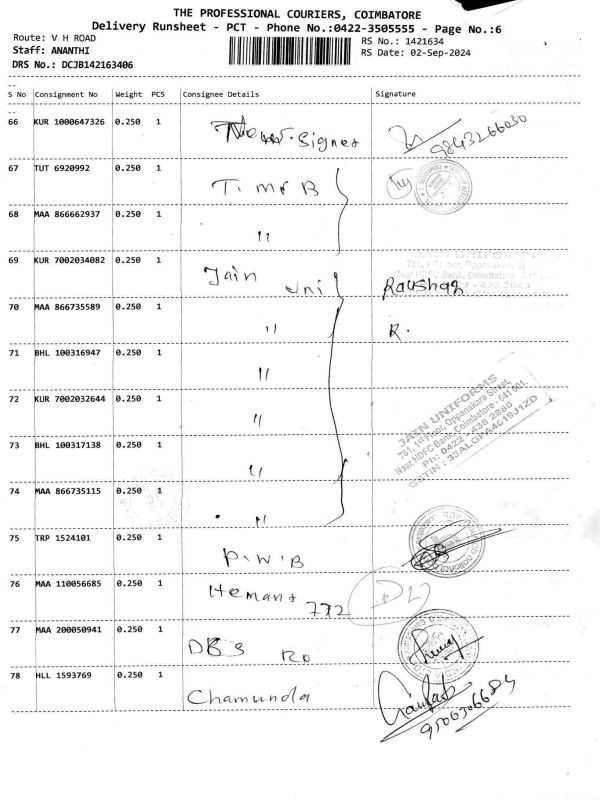 THE PROFESSIONAL COURIERS, COIMBATORE
Delivery Runsheet - PCT - Phone No.:0422-3505555 - Page No.:6
Route: V H ROAD
RS No.: 1421634
Staff: ANANTHI
RS Date: 02-Sep-2024
DRS No.: DCJB142163406
S No Consignment No Weight PCS Consignee Details Signature
66 KUR 1000647326 0.250 1 signer 9843266030
67 TUT 6920992 0.250 1 T. M B
68 MAA 866662937 0.250 1 "
69 KUR 7002034082 0.250 1 Jain uni
JAIN UNIFORMS
Raushan
70 MAA 866735589 0.250 1 " R.
71 BHL 100316947 0.250 1 "
72 KUR 7002032644 0.250 1 "
JAIN UNIFORMS
761, 1st Floor, Oppanakara Street,
Near HDFC Bank, Coimbatore - 641 001.
Ph: 0422 - 438 2886
GSTIN : 33ALGPA4619J1ZD
73 BHL 100317138 0.250 1 "
74 MAA 866735115 0.250 1 "
75 TRP 1524101 0.250 1 P.W.B
76 MAA 110056685 0.250 1 Hemans 772
77 MAA 200050941 0.250 1 DBS RD
78 HLL 1593769 0.250 1 Chamunda
9500306684